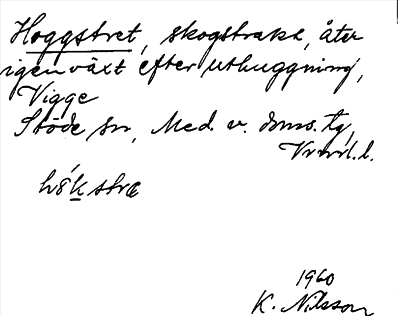 Hoggstret, skogstrakt, åter
igenväxt efter uthuggning,
Vigge
Stöde sn, Med. v. doms. tg,
l.
hŏk stræ
1960
K. Nilsson